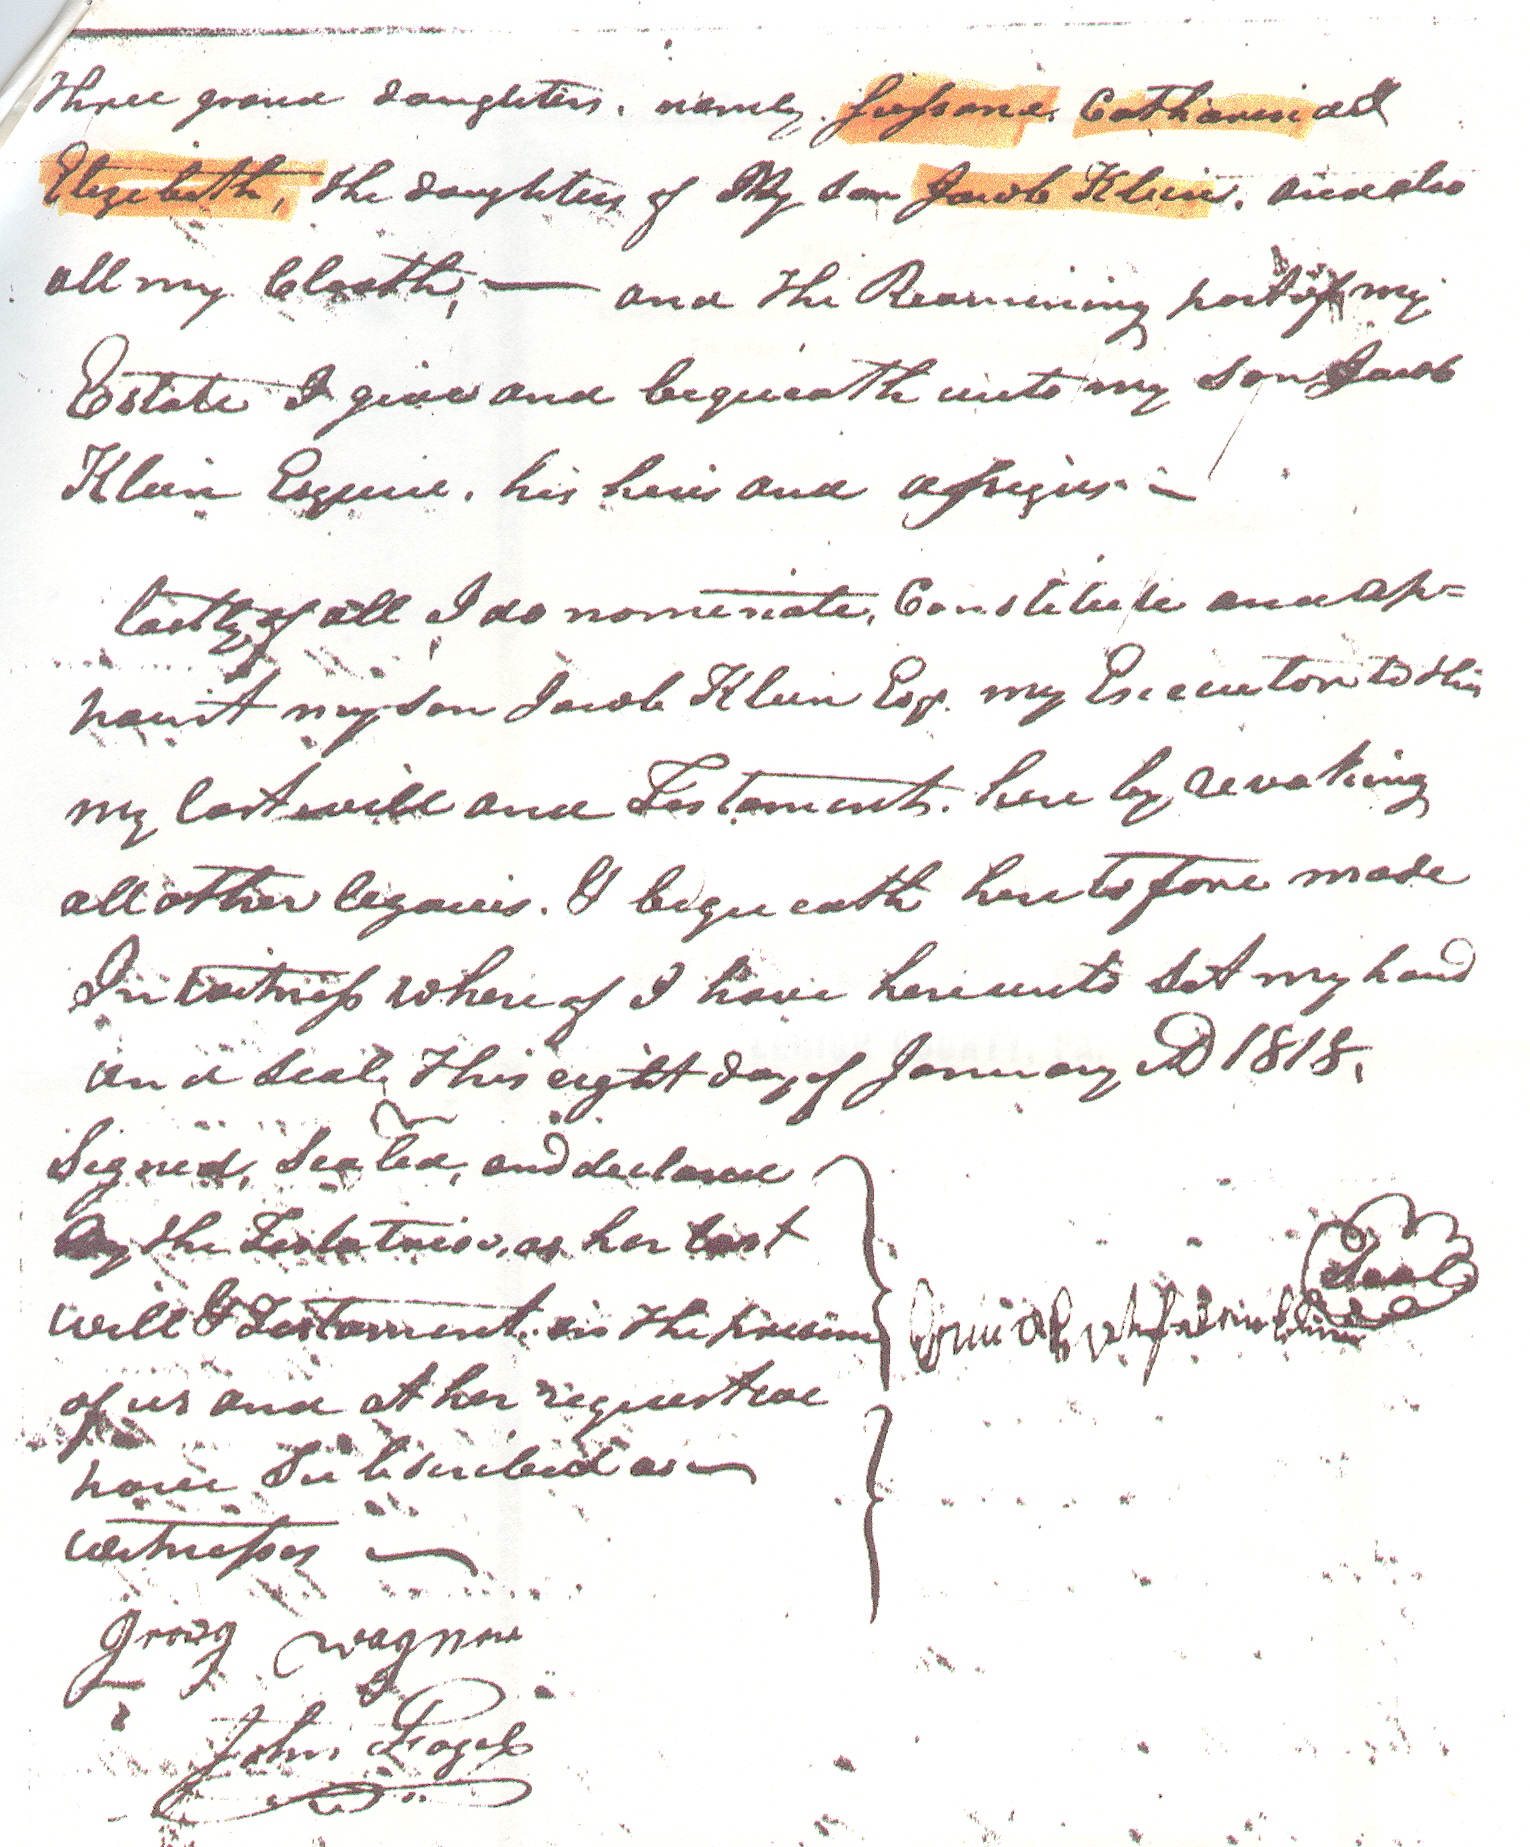 Three grand daughters. namely. Sussana. Catharin and
Elizebeth, the daughters of My son Jacob Klein. and also
all my Cloath, — and the Reamining part of my
Estate I give and bequeath unto my son Jacob
Klein Esquire. his heirs and assigns. —
lastly of all I do nominate, Constitute and ap=
point my son Jacob Klein Esqr. my Executor to this
my last will and Testament. here by revoking
all other legacies. I bequeath heretofore made
In witness where of I have hereunto set my hand
and seal, This eight day of January AD 1818.
Signed, Sealed, and declared
By the Testatrix, as her last
will & Testament. in the presence
Seal
of us and at her request we
have Subscribed as
witnesses
Georg Wagner
John Fogel